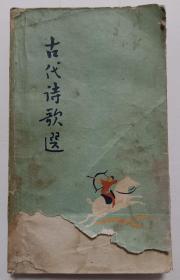 古代诗歌选